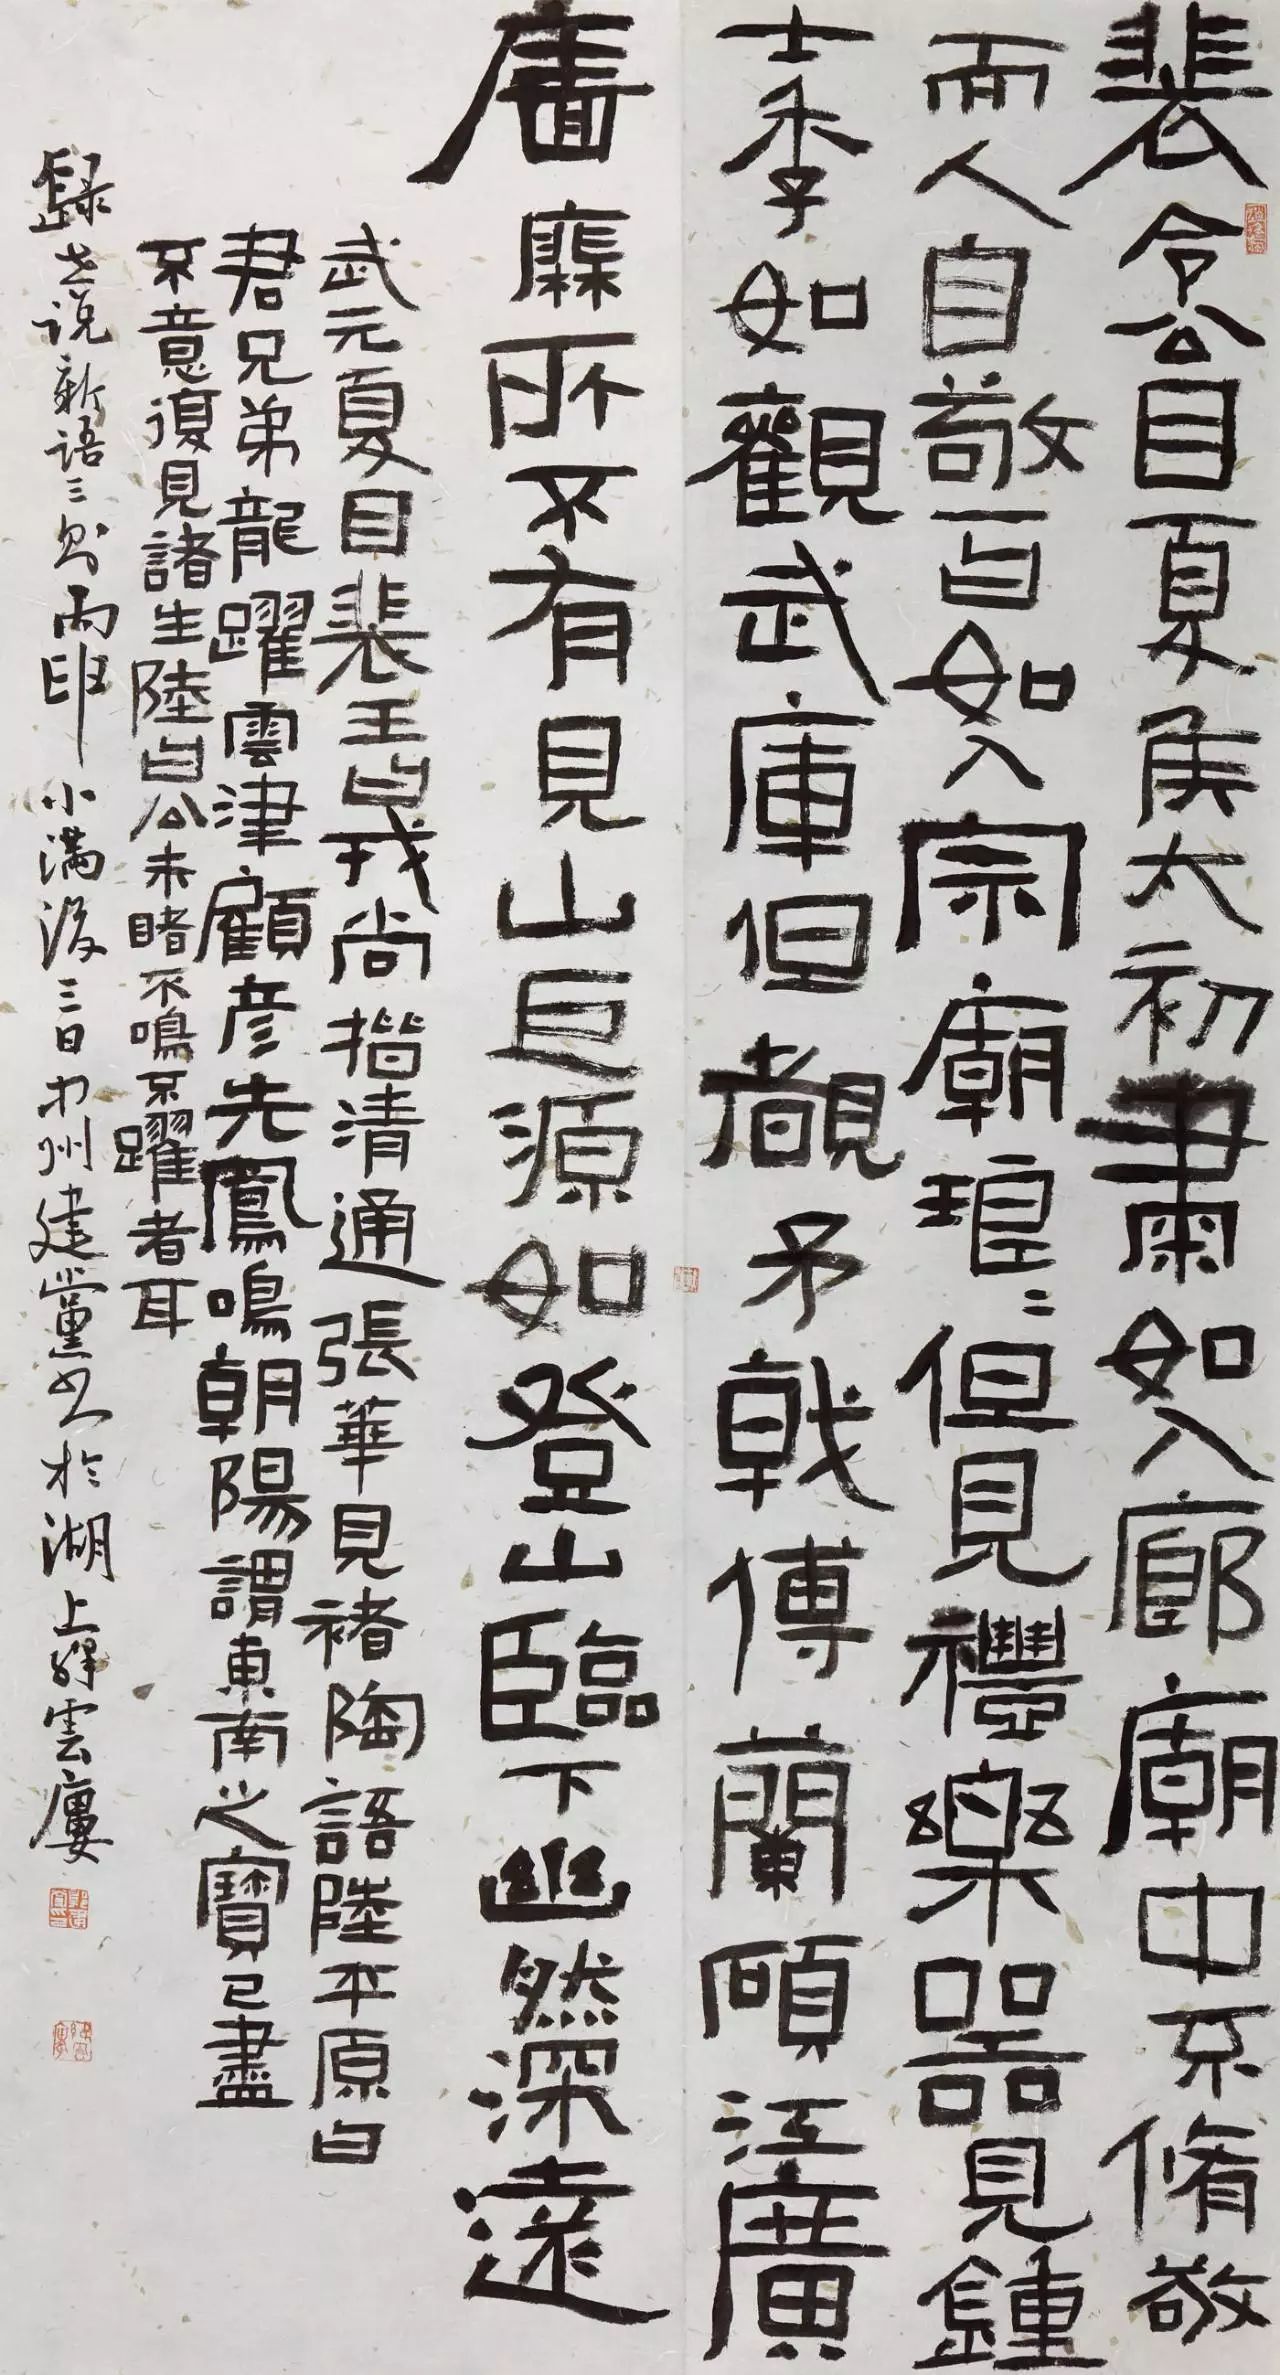 裴令公目夏侯太初肅如入廊廟中不脩敬
而人自敬一曰如入宗廟琅琅但見禮樂器見鍾
士季如觀武庫但覩矛戟傅蘭碩江廧
廧靡所不有見山巨源如登山臨下幽然深遠
武元夏目裴王曰戎尚楷清通張華見褚陶語陸平原曰
君兄弟龍躍雲津顧彦先鳳鳴朝陽謂東南之寶已盡
不意復見諸生陸曰公未睹不鳴不躍者耳
録世说新语三則丙申小满後三日
建黨书於湖上
雲廔